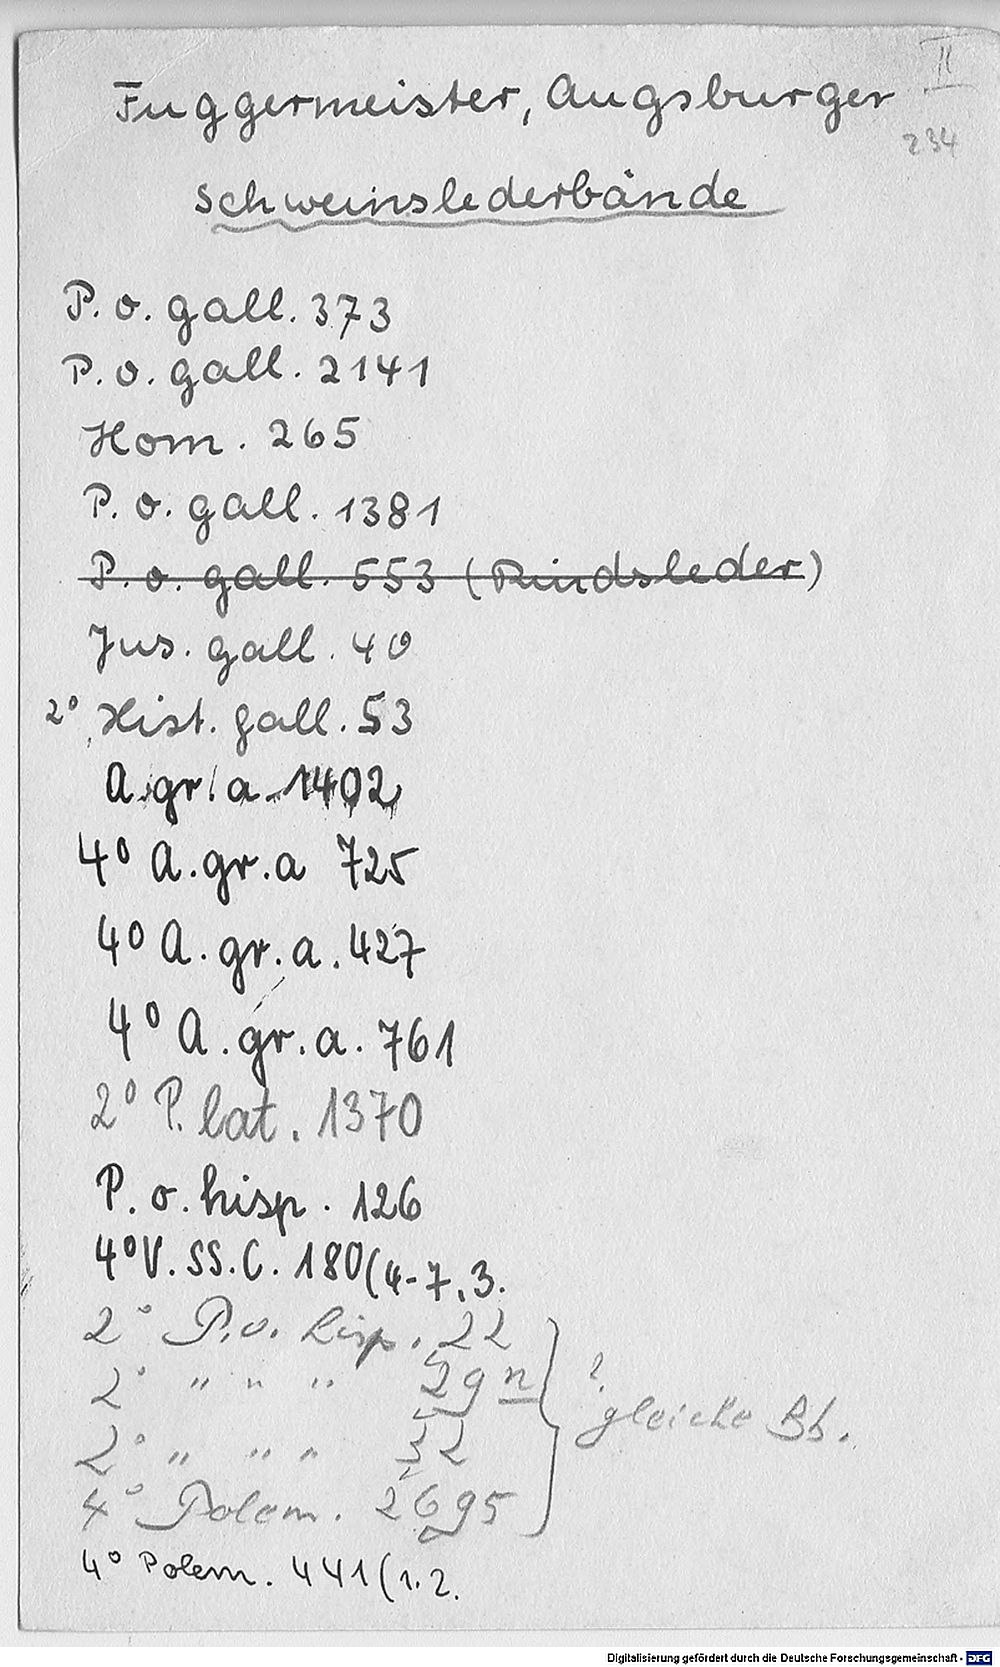 II
Fuggermeister, Augsburger
234
Schweinslederbände
P. o. gall. 373
P. o. gall. 2141
Hom. 265
P. o. gall. 1381
P. o. gall. 553 (Rindsleder)
Jus. gall. 40
2° Hist. gall. 53
A. gr. a. 1402
4° A. gr. a 725
4° A. gr. a. 427
4° A. gr. a. 761
2° P. lat. 1370
P. o. hisp. 126
4° V. SS. C. 180(4-7, 3.
2° P. o. hisp. 22
2° " " " 29 n
? gleiche Bb.
2° " " " 32
4° Polem. 2695
4° Polem. 441(1. 2.
Digitalisierung gefördert durch die Deutsche Forschungsgemeinschaft - DFG